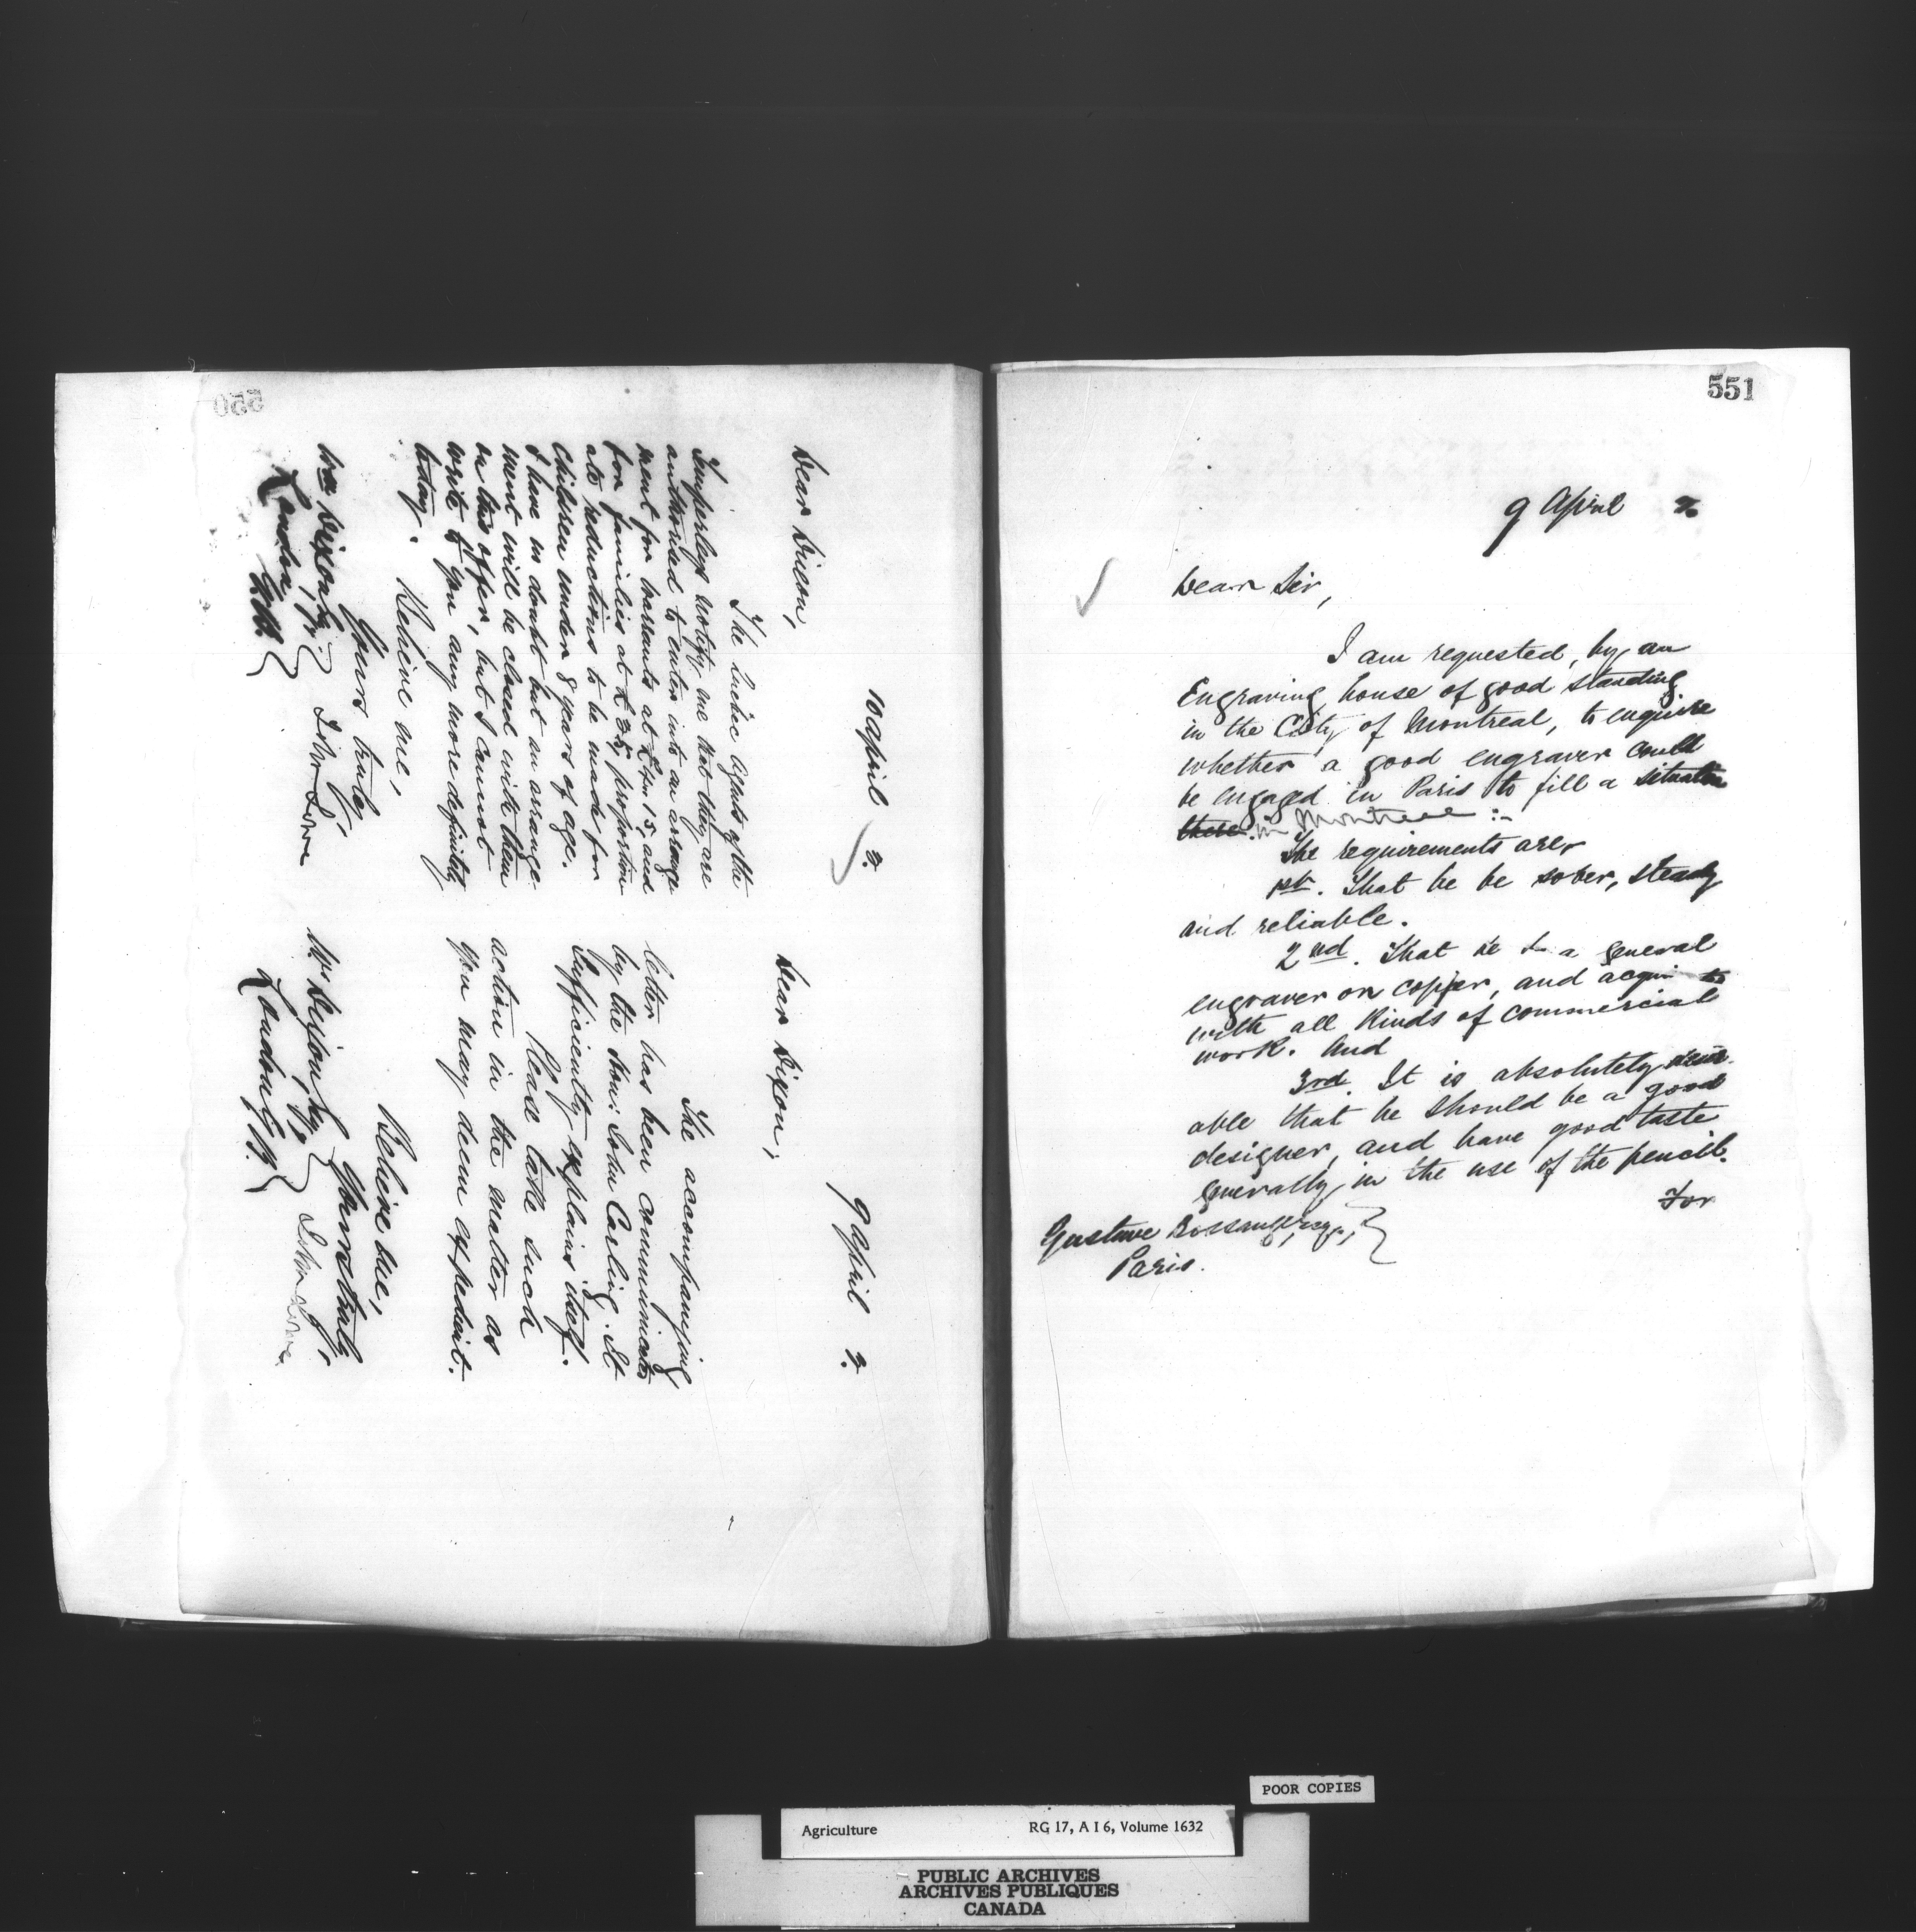 550
10 April 3.
Dear Dixon,
The Quebec Agents of the
Imperleys notify me that they are
authorised to enter into an arrange
ment for warrants at £4.15, and
for families at £ 3.5, proportion
ate reductions to be made for
children under 8 years of age.
I have no doubt but an arrange-
ment will be closed with them
on this offer, but I cannot
write to you any more definitely
today.
Believe me,
Yours truly,
John Lowe
Wm Dixon, Esq.
London, E.C.
9 April 3.
Dear Dixon,
The accompanying
letter has been communicated
by the Hon: John Carling. It
sufficiently explains itself.
Please take such
action in the matter as
you may deem expedient.
Believe me,
Yours truly,
John Lowe
W Dixon Esq,
London
551
9 April
Dear Sir,
I am requested, by an
Engraving house of good standing
in the City of Montreal, to enquire
whether a good engraver could
be engaged in Paris to fill a situation
there. in Montreal :-
The requirements are,
1st. That he be sober, steady
and reliable.
2nd. That he be a general
engraver on copper, and
with all kinds of commercial
work. And
3rd. It is absolutely desir-
able that he should be a good
designer, and have good taste
generally in the use of the pencil.
For
Gustave Bossange, Esq.,
Paris.
POOR COPIES
Agriculture RG 17, A I 6, Volume 1632
PUBLIC ARCHIVES
ARCHIVES PUBLIQUES
CANADA